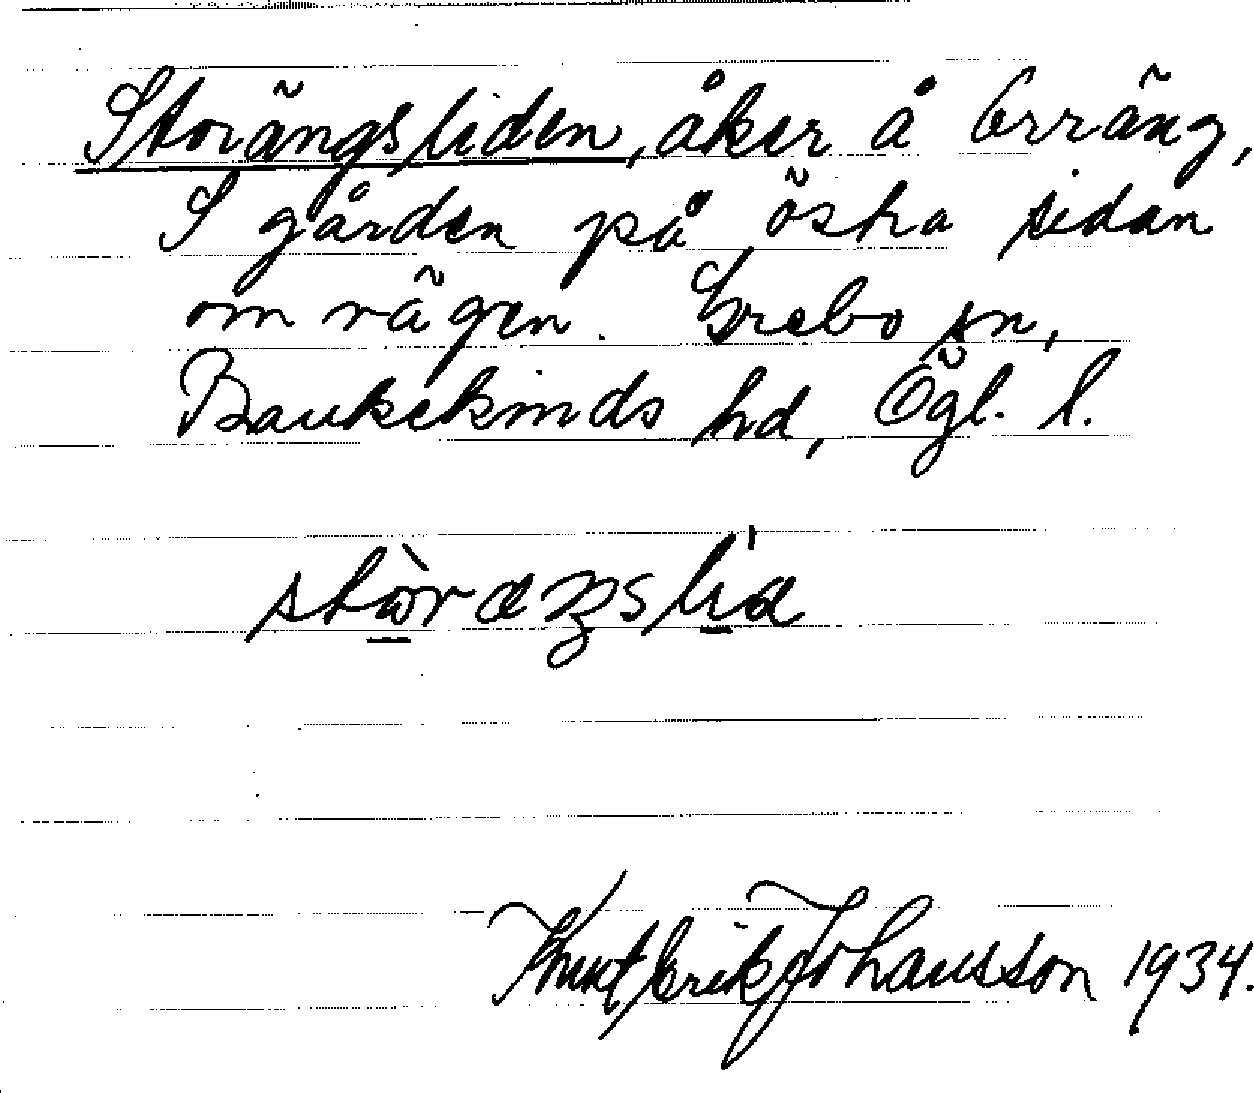 Storängsliden, åker å Erräng,
S gården på östra sidan
om vägen. Grebo sn,
Bankekinds hd, Ögl. l.
stòræŋslia
Knut Erik Johansson 1934.